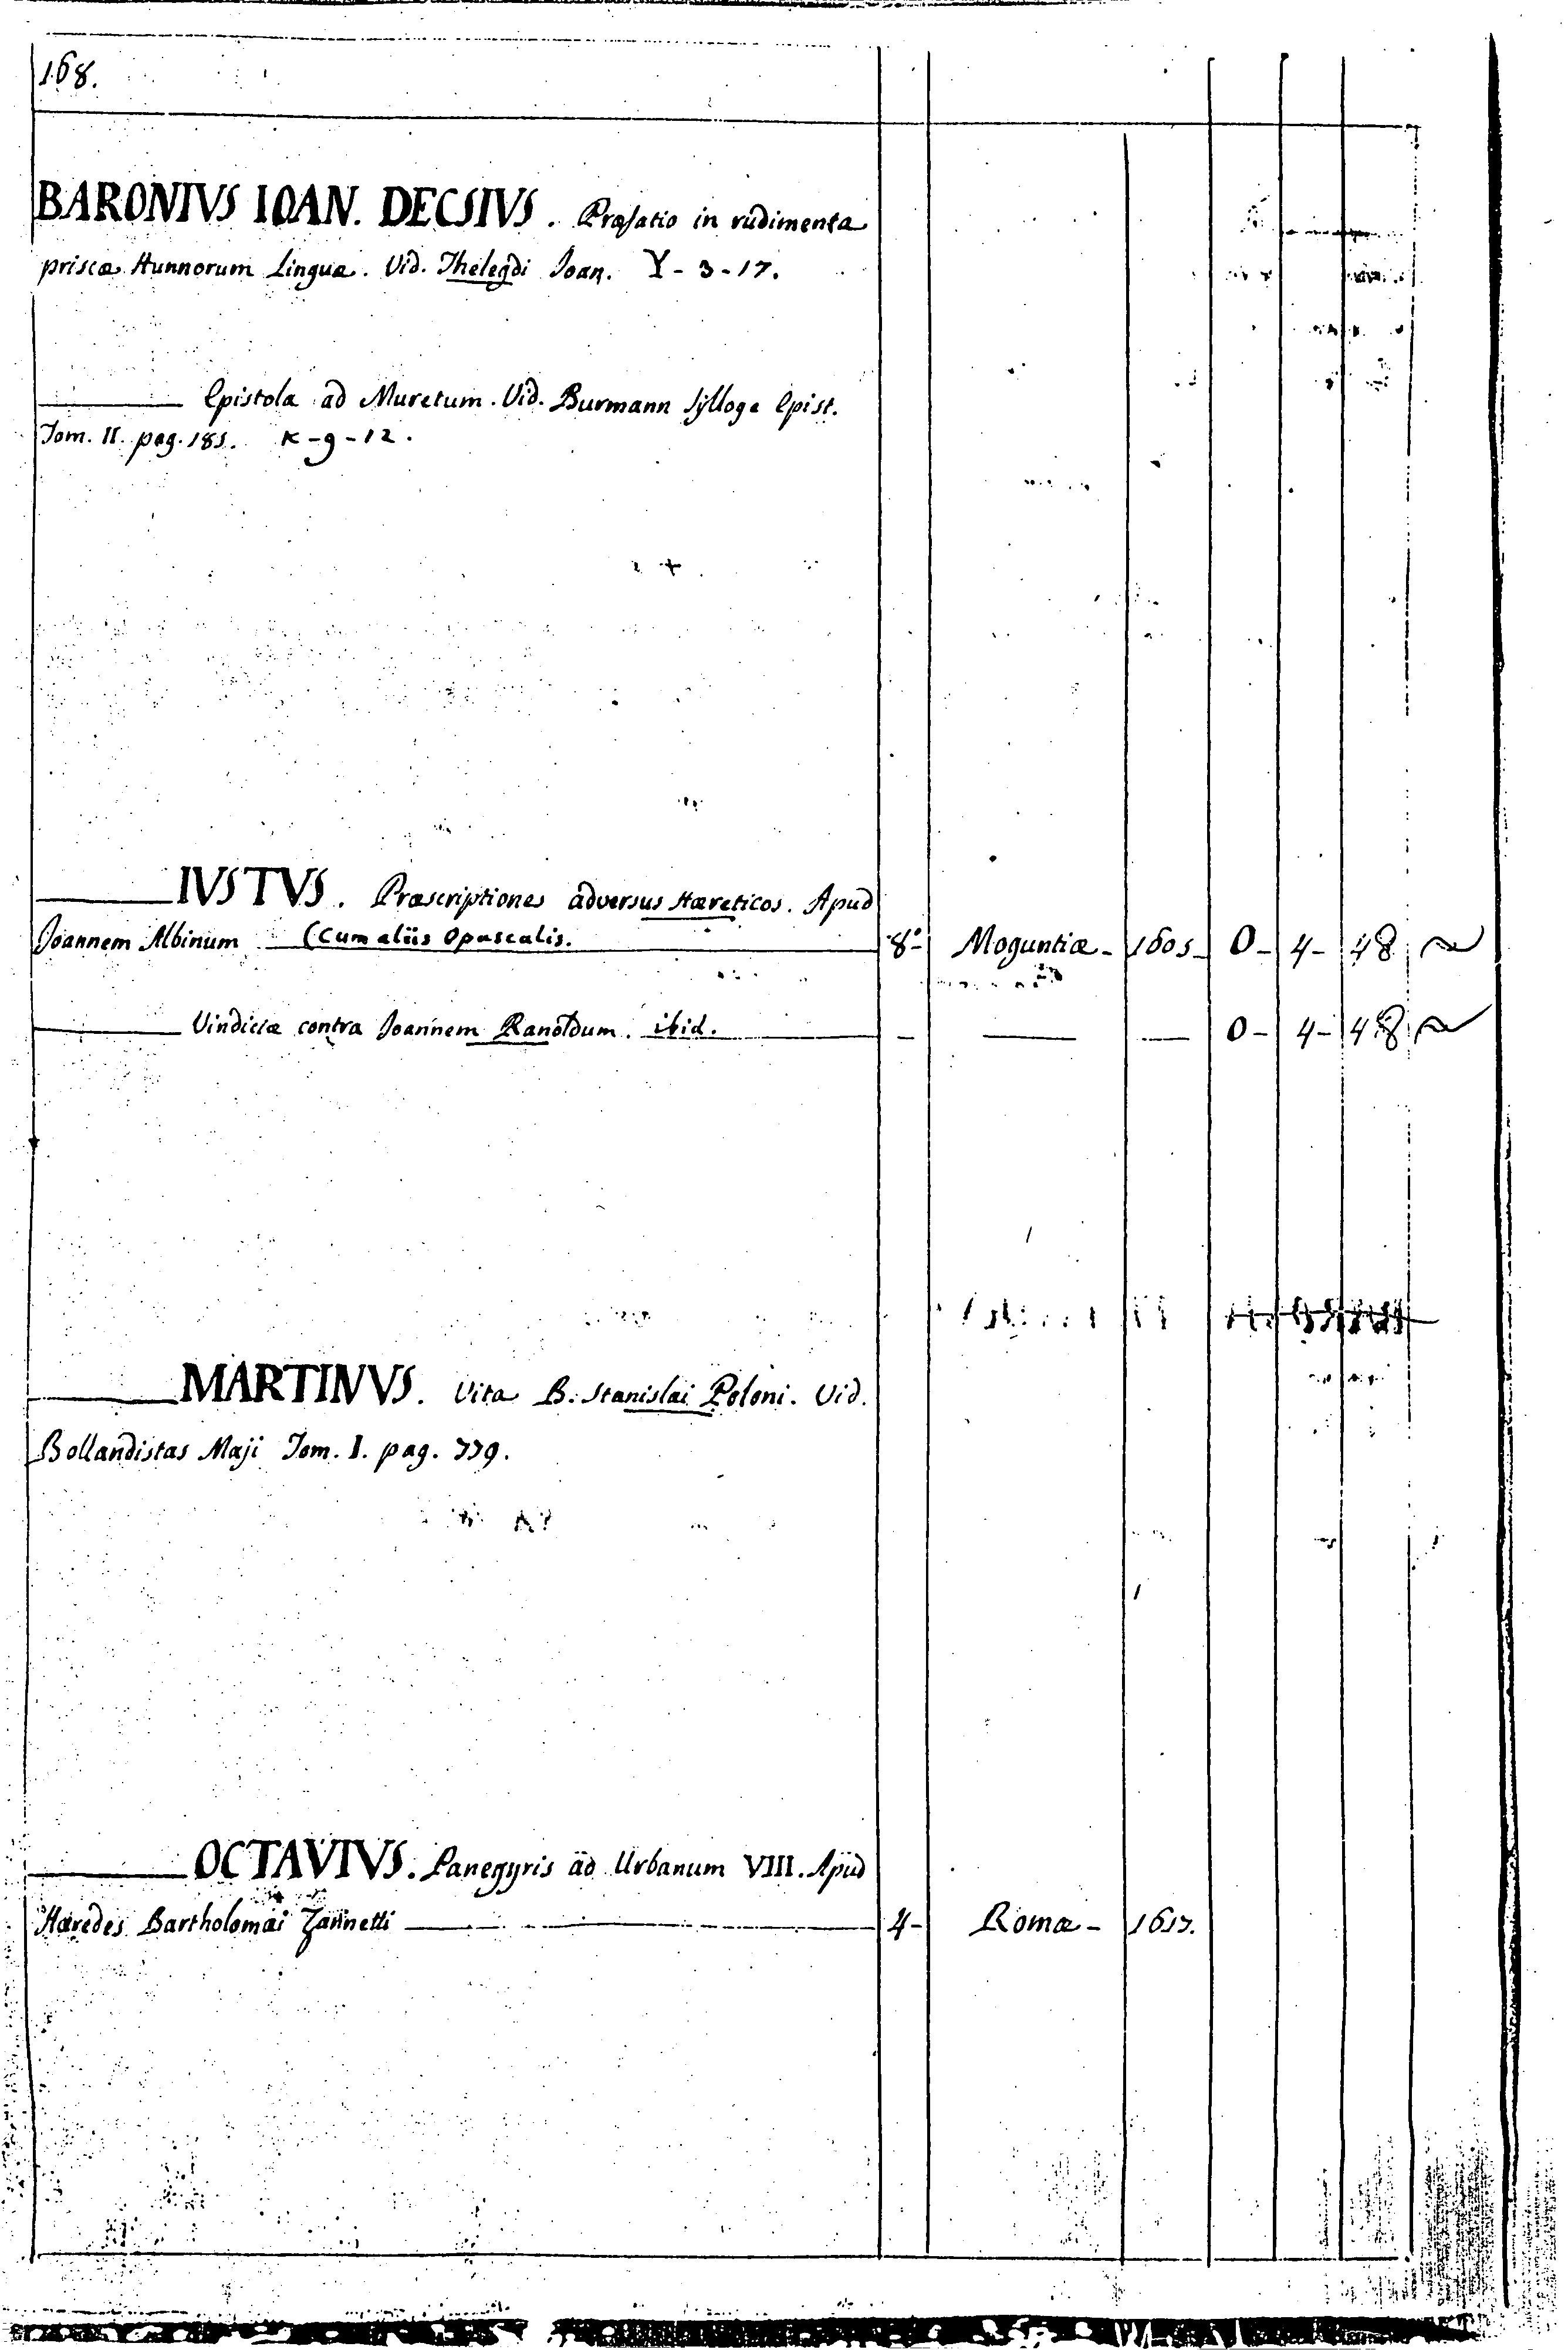 168.
BARONIVS IOAN. DECSIVS. Præfatio in rudimenta
priscæ Hunnorum Linguæ. Vid. Thelegdi Joan. Y-3-17.
Epistola ad Muretum. Vid. Burmann Sylloge Epist.
Tom. II. pag. 181. K-9-12.
IVSTVS. Præscriptiones adversus Hæreticos. Apud
Joannem Albinum (Cum aliis Opusculis. 8º- Moguntiæ- 1605- O- 4- 48
Vindiciæ contra Joannem Ranoldum. ibid. O- 4- 48
MARTINVS. Vita B. Stanislai Poloni. Vid.
Bollandistas Maji Tom. I. pag. 779.
OCTAVIVS. Panegyris ad Urbanum VIII. Apud
Hæredes Bartholomæi Zannetti 4- Romæ- 1617.